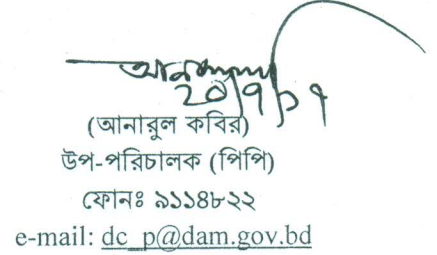 ২০/৭/১৭
(আনারুল কবির)
উপ-পরিচালক (পিপি)
ফোনঃ ৯১১৪৮২২
e-mail: dc_p@dam.gov.bd